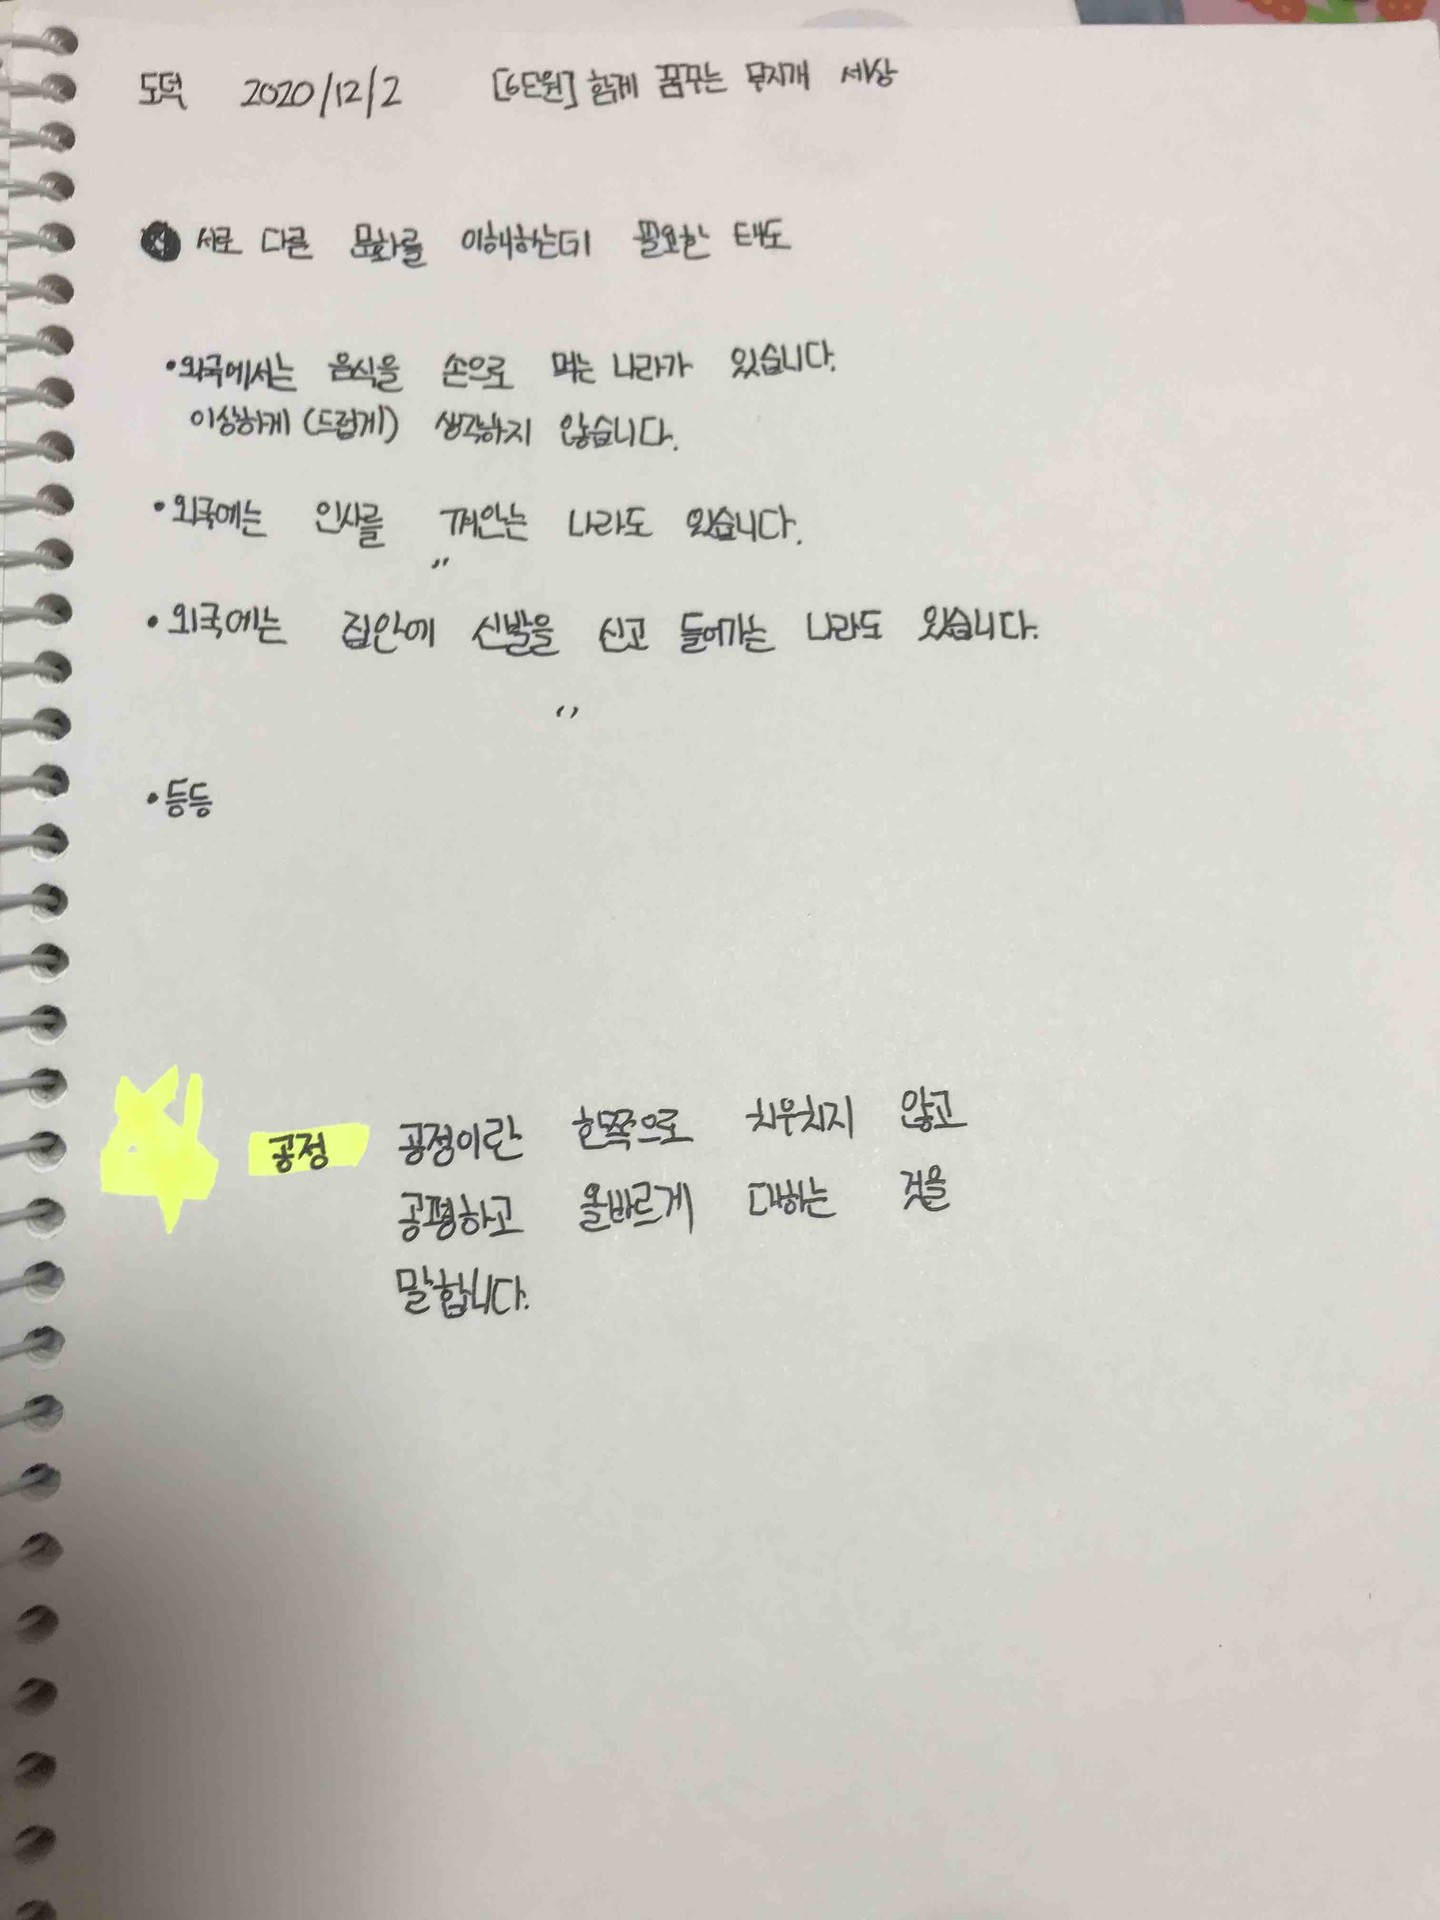 도덕 2020/12/2 [6단원] 함께 꿈꾸는 무지개 세상
서로 다른 문화를 이해하는데 필요한 태도
•외국에서는 음식을 손으로 먹는 나라가 있습니다.
이상하게 (드럽게) 생각하지 않습니다.
•외국에는 인사를 껴안는 나라도 있습니다.
〃
•외국에는 집안에 신발을 신고 들어가는 나라도 있습니다.
〃
•등등
공정 공정이란 한쪽으로 치우치지 않고
공평하고 올바르게 대하는 것을
말합니다.